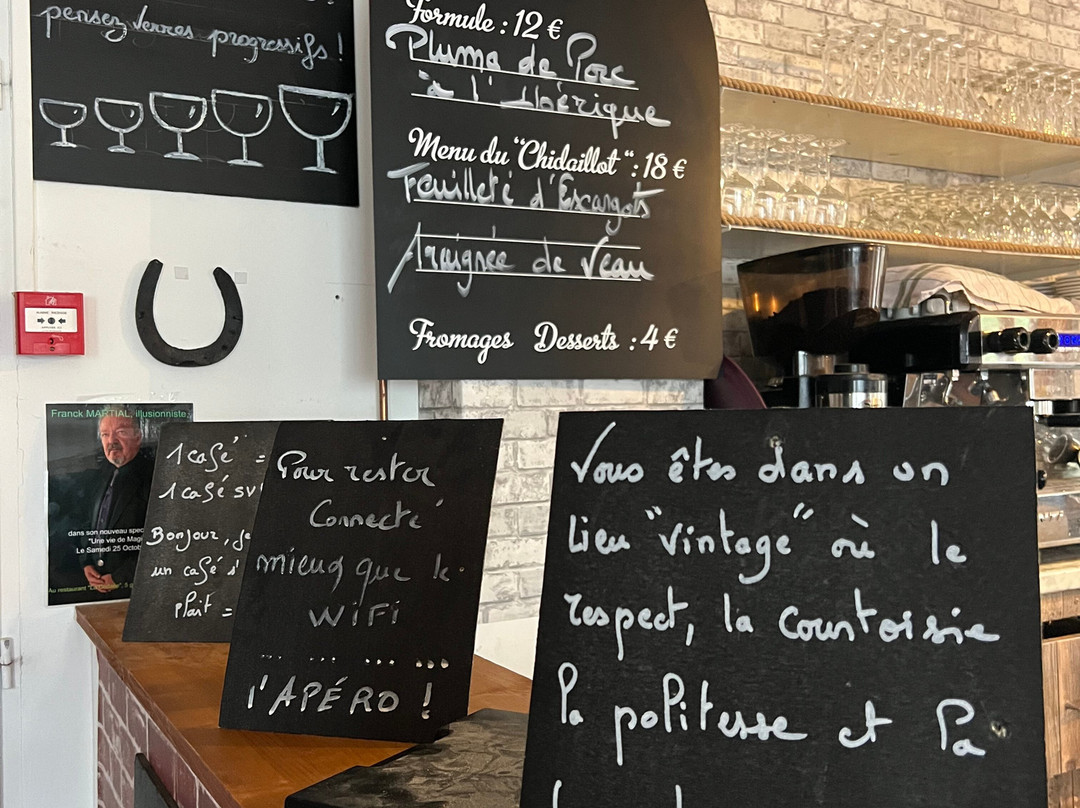 pensez verres progressifs !
Formule : 12 €
Pluma de Porc
à l'Ibérique
Menu du "Chidaillot" : 18 €
Feuilleté d'Escargots
Araignée de Veau
Fromages Desserts : 4 €
Franck MARTIAL, illusionniste,
dans son nouveau
"Une vie de
Le Samedi 25
Au restaurant
1 café =
1 café
Bonjour,
un café
Plait =
Pour rester
Connecté
mieux que le
WiFi
... ... ... ...
l'APÉRO !
Vous êtes dans un
lieu "vintage" où le
respect, la courtoisie
la politesse et la